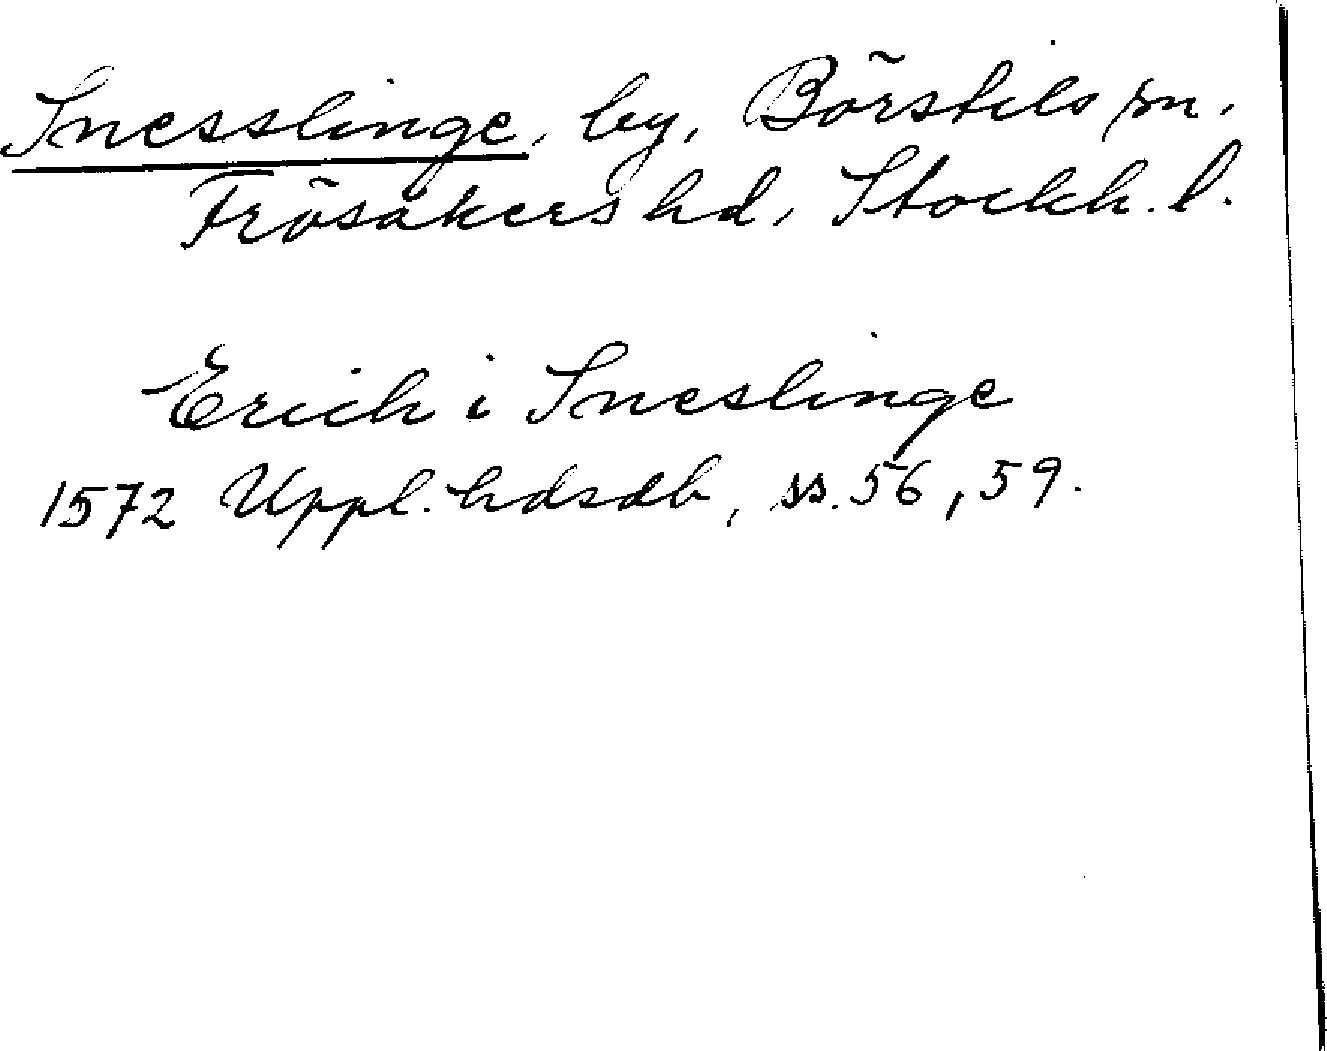 Snesslinge, by, Börstils sn.
Frösåkers hd, Stockh. l.
Erich i Sneslinge
1572 Uppl. hdsdb, ss. 56, 59.